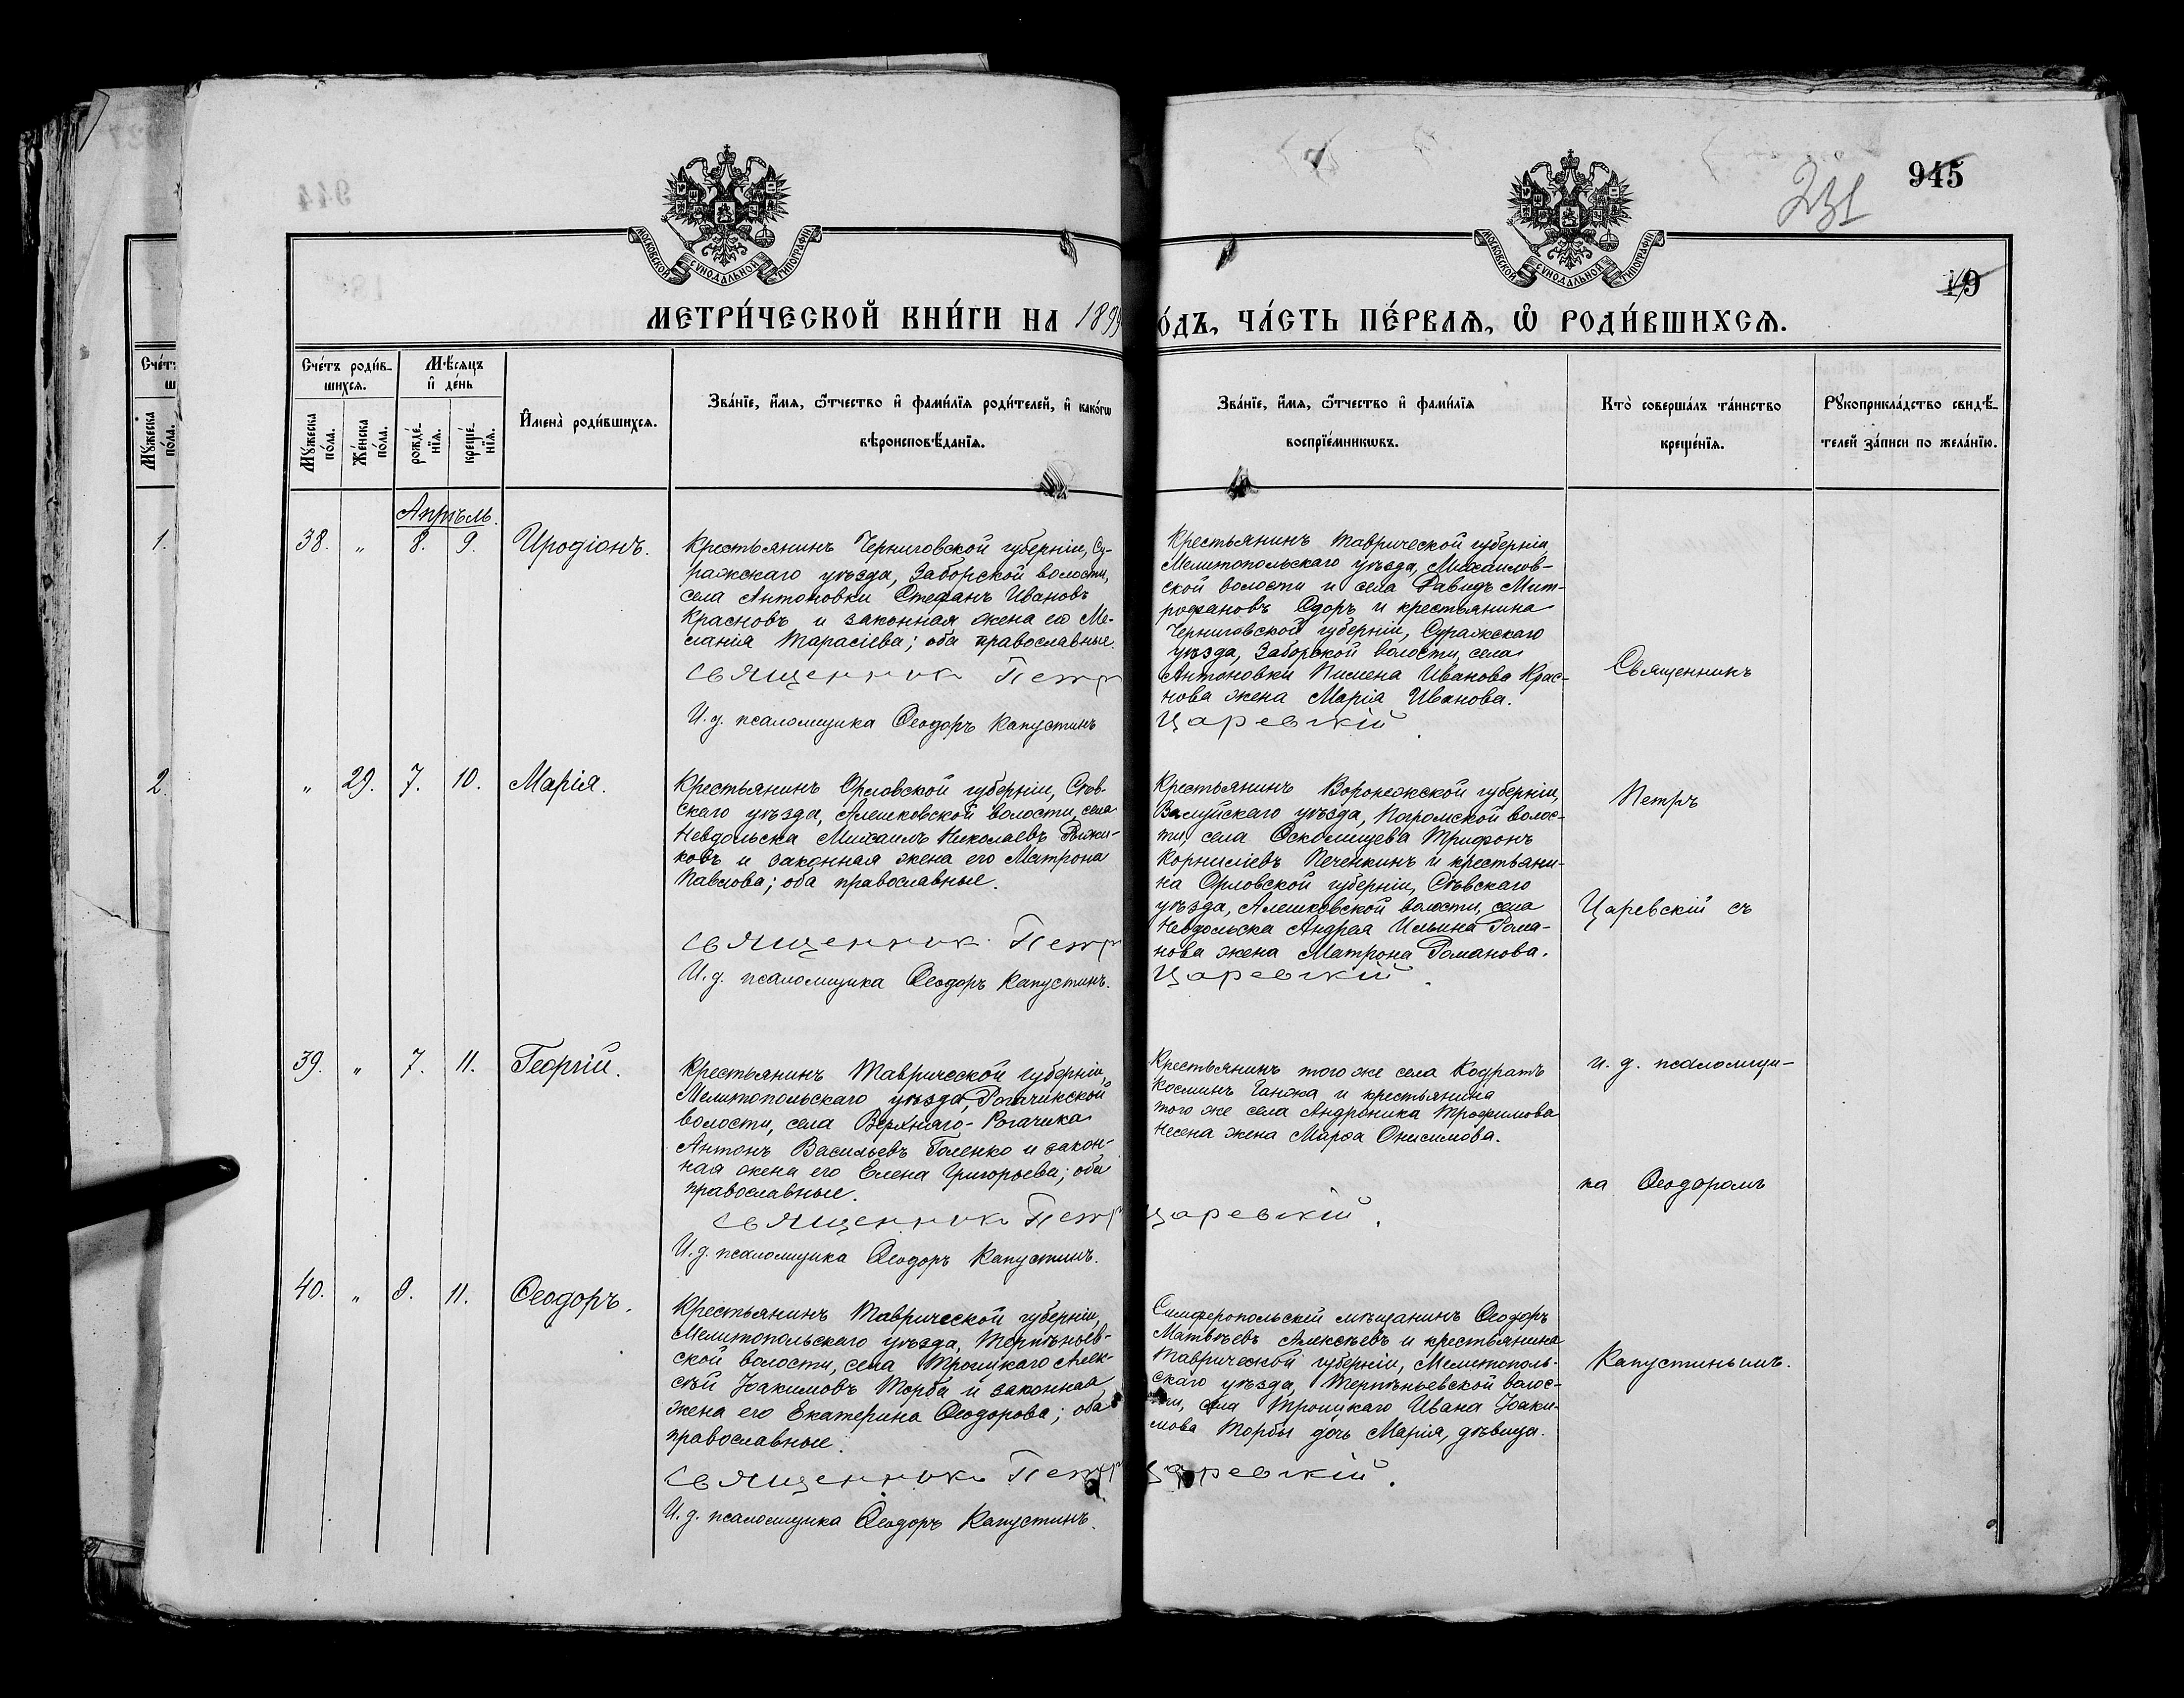 945
231
19
МОСКОВСКОЙ СѴНОДАЛЬНОЙ ТИПОГРАФІИ
МОСКОВСКОЙ СѴНОДАЛЬНОЙ ТИПОГРАФІИ
МЕТРИ́ЧЕСКОЙ КНИ́ГИ НА 1899
О́ДЪ, ЧА́СТЬ ПЕ́РВАѦ, Ѡ҆ РОДИ́ВШИХСѦ.
Сче́тъ роди́в-
шихсѧ.
Мꙋ́жеска по́ла.
Же́нска по́ла.
Мѣ́сѧцъ
и҆ де́нь
рожде́-
нїѧ.
креще́-
нїѧ.
И҆мена̀ роди́вшихсѧ.
Зва́нїе, и҆́мѧ, ѻ҆́тчество и҆ фами́лїѧ роди́телей, и҆ како́гѡ
вѣроисповѣ́данїѧ.
Зва́нїе, и҆́мѧ, ѻ҆́тчество и҆ фами́лїѧ
воспрїе́мникѡвъ.
Кто̀ соверша́лъ та́инство
креще́нїѧ.
Рꙋкоприкла́дство свидѣ́-
телей за́писи по жела́нїю.
Апрѣль.
38. „ 8. 9. Иродіонъ.
Крестьянинъ Черниговской губерніи, Су-
ражскаго уѣзда, Заборской волости,
села Антоновки Стефанъ Ивановъ
Красновъ и законная жена его Ме-
ланія Тарасіева; оба православные.
Священникъ Петр
И. д. псаломщика Ѳеодоръ Капустинъ
Крестьянинъ Таврической губерніи,
Мелитопольскаго уѣзда, Михайлов-
ской волости и села Давидъ Мит-
рофановъ Сдоръ и крестьянина
Черниговской губерніи, Суражскаго
уѣзда, Заборской волости, села
Антоновки Пимена Иванова Крас-
нова жена Марія Иванова.
Царевскій
„ 29. 7. 10. Марія.
Крестьянинъ Орловской губерніи, Сѣв-
скаго уѣзда, Алешковской волости, села
Невдольска Михаилъ Николаевъ Рыжи-
ковъ и законная жена его Матрона
Павлова; оба православные.
Священникъ Петр
И. д. псаломщика Ѳеодоръ Капустинъ.
Крестьянинъ Воронежской губерніи,
Валуйскаго уѣзда, Погромской волос-
ти, села Осколищева Трифонъ
Корниліевъ Печенкинъ и крестьяни-
на Орловской губерніи, Сѣвскаго
уѣзда, Алешковской волости, села
Невдольска Андрея Ильина Рома-
нова жена Матрона Романова.
Царевскій.
39. „ 7. 11. Георгій.
Крестьянинъ Таврической губерніи,
Мелитопольскаго уѣзда, Рогачикской
волости, села Верхняго-Рогачика
Антонъ Васильевъ Голенко и закон-
ная жена его Елена Григорьева; оба
православные.
Священникъ Петр
И. д. псаломщика Ѳеодоръ Капустинъ.
Крестьянинъ того же села Кодратъ
Косминъ Ганжа и крестьянина
того же села Андроника Трофимова
Несена жена Марѳа Онисимова.
Царевскій.
40. „ 9. 11. Ѳеодоръ.
Крестьянинъ Таврической губерніи,
Мелитопольскаго уѣзда, Терпѣньев-
ской волости, села Троицкаго Алек-
сѣй Іоакимовъ Торба и законная
жена его Екатерина Ѳеодорова; оба
православные.
Священникъ Петр
И. д. псаломщика Ѳеодоръ Капустинъ.
Симферопольскій мѣщанинъ Ѳеодоръ
Матвѣевъ Алексѣевъ и крестьянина
Таврической губерніи, Мелитополь-
скаго уѣзда, Терпѣньевской волос-
ти, села Троицкаго Ивана Іоаки-
мова Торбы дочь Марія, дѣвица.
Царевскій.
Священникъ
Петръ
Царевскій съ
и. д. псаломщи-
ка Ѳеодоромъ
Капустинымъ.
Сче́т
ш
Мꙋ́жеска по́ла.
1.
2.